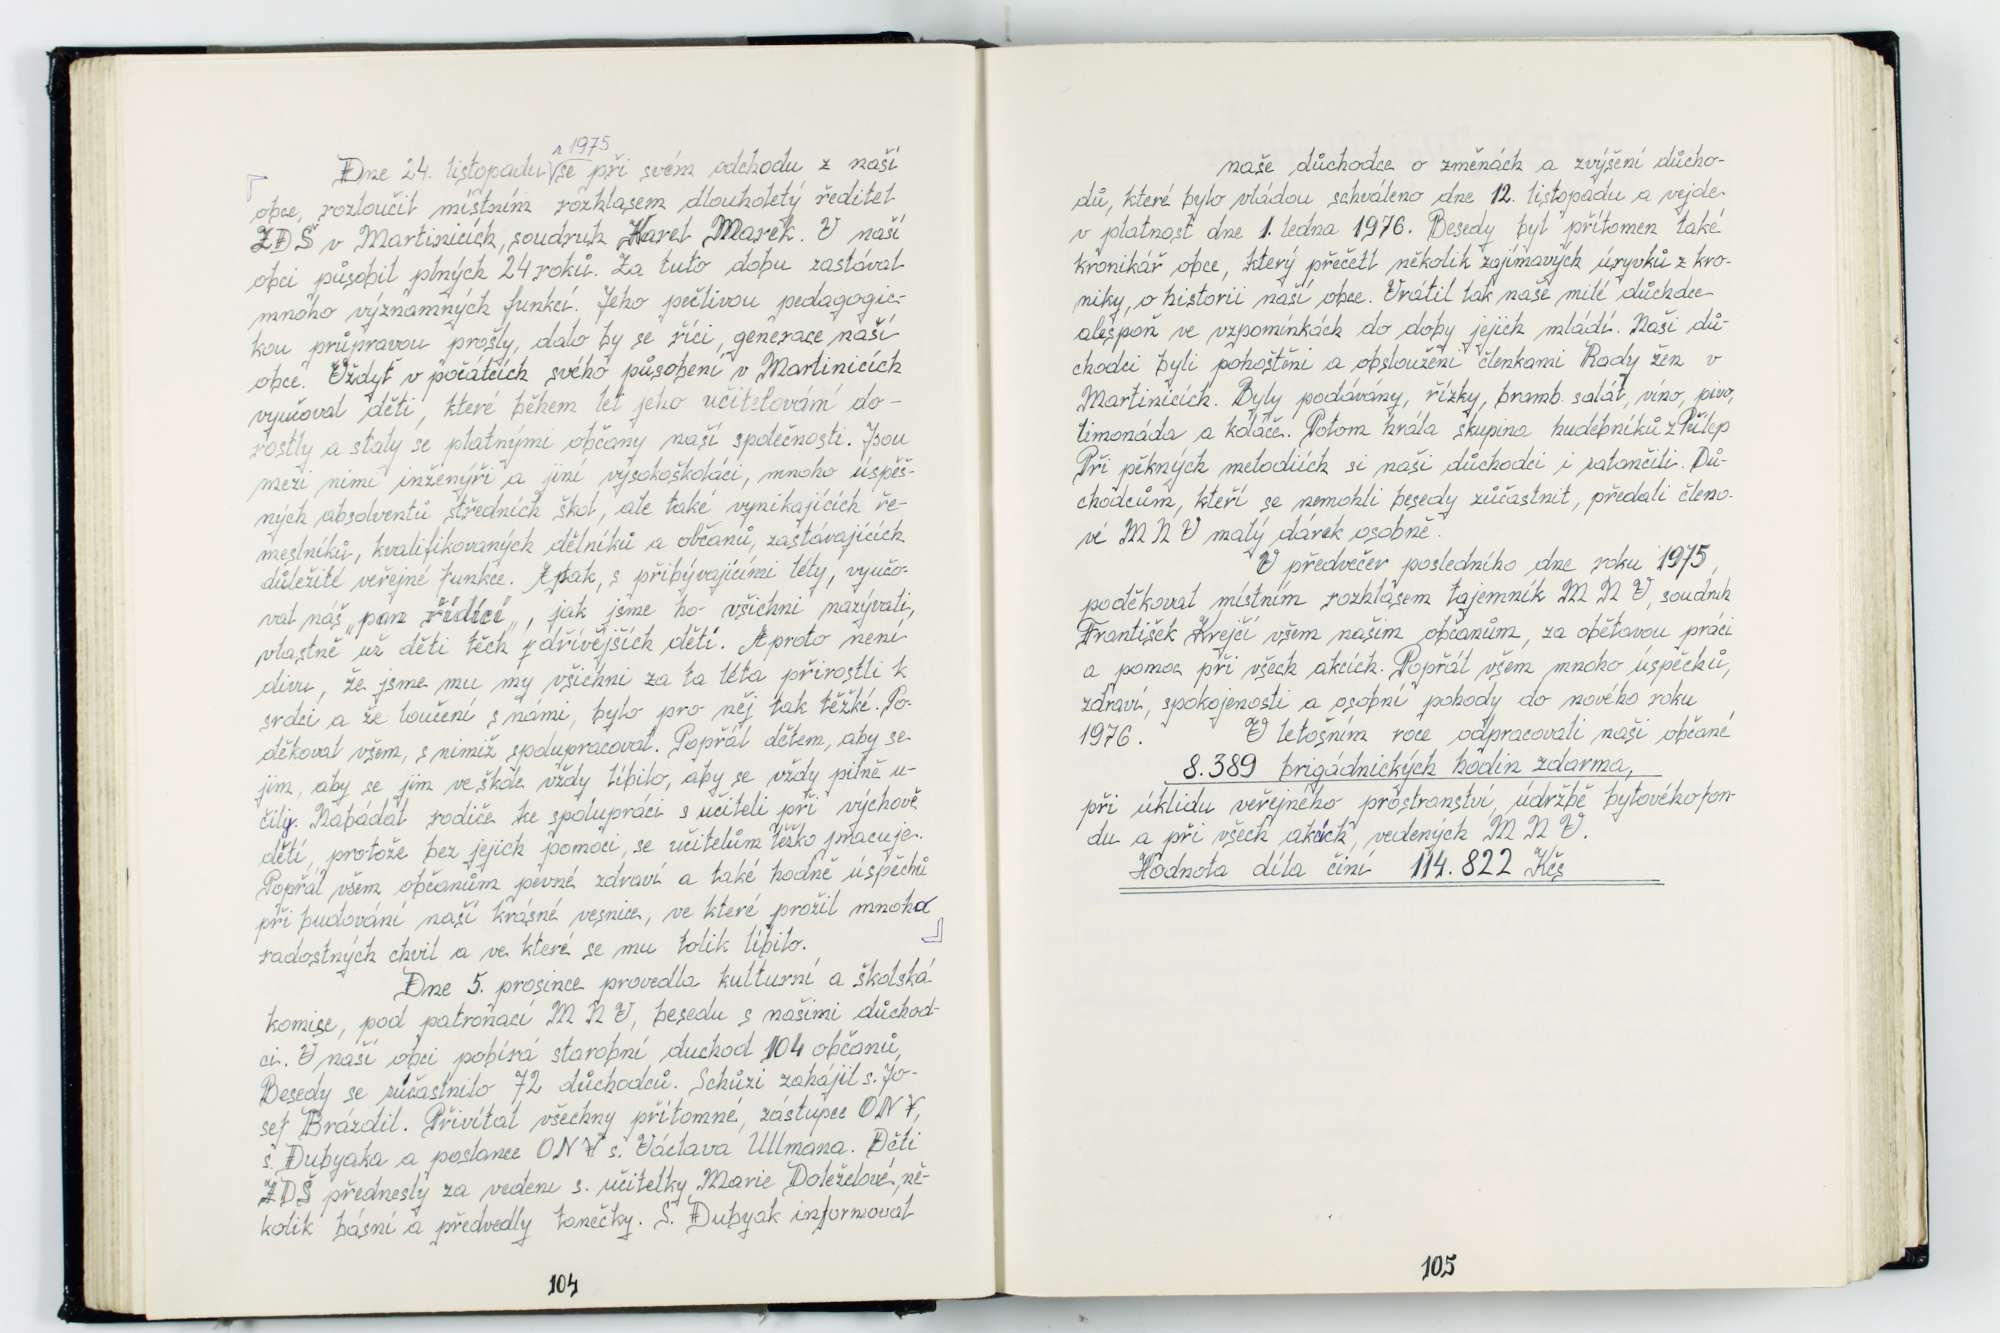 r. 1975
Dne 24. listopadu se při svém odchodu z naší
obce, rozloučil místním rozhlasem dlouholetý ředitel
ZDŠ v Martinicích, soudruh Karel Marek. V naší
obci působil plných 24 roků. Za tuto dobu zastával
mnoho významných funkcí. Jeho pečlivou pedagogic-
kou průpravou prošly, dalo by se říci, generace naší
obce. Vždyť v počátcích svého působení v Martinicích
vyučoval děti, které během let jeho učitelování do-
rostly a staly se platnými občany naší společnosti. Jsou
mezi nimi inženýři a jiní vysokoškoláci, mnoho úspěš-
ných absolventů středních škol, ale také vynikajících ře-
meslníků, kvalifikovaných dělníků a občanů, zastávajících
důležité veřejné funkce. A pak, s přibývajícími léty, vyučo-
val náš "pan řídící", jak jsme ho všichni nazývali,
vlastně už děti těch dřívějších dětí. A proto není
divu, že jsme mu my všichni za ta léta přirostli k
srdci a že loučení s námi, bylo pro něj tak těžké. Po-
děkoval všem, s nimiž spolupracoval. Popřál dětem, aby se
jim, aby se jim ve škole vždy líbilo, aby se vždy pilně u-
čily. Nabádal rodiče ke spolupráci s učiteli při výchově
dětí, protože bez jejich pomoci, se učitelům těžko pracuje.
Popřál všem občanům pevné zdraví a také hodně úspěchů
při budování naší krásné vesnice, ve které prožil mnoho
radostných chvil a ve které se mu tolik líbilo.
Dne 5. prosince provedla kulturní a školská
komise, pod patronací MNV, besedu s našimi důchod-
ci. V naší obci pobírá starobní duchod 104 občanů,
Besedy se zúčastnilo 72 důchodců. Schůzi zahájil s. Jo-
sef Brázdil. Přivítal všechny přítomné, zástupce ONV,
s. Dubyaka a poslance ONV s. Václava Ullmana. Děti
ZDŠ přednesly za vedení s. učitelky Marie Doleželové, ně-
kolik básní a předvedly tanečky. S. Dubyak informoval
104
naše důchodce o změnách a zvýšení důcho-
dů, které bylo vládou schváleno dne 12. listopadu a vejde
v platnost dne 1. ledna 1976. Besedy byl přítomen také
kronikář obce, který přečetl několik zajímavých úryvků z kro-
niky, o historii naší obce. Vrátil tak naše milé důchdce
alespoň ve vzpomínkách do doby jejich mládí. Naši dů-
chodci byli pohoštěni a obslouženi členkami Rady žen v
Martinicích. Byly podávány, řízky, bramb. salát, víno, pivo,
limonáda a koláče. Potom hrála skupina hudebníků z Přílep
Při pěkných melodiích si naši důchodci i zatančili. Dů-
chodcům, kteří se nemohli besedy zúčastnit, předali členo-
vé MNV malý dárek osobně.
V předvečer posledního dne roku 1975,
poděkoval místním rozhlasem tajemník MNV, soudruh
František Krejčí všem našim občanům, za obětavou práci
a pomoc při všech akcích. Popřál všem mnoho úspěchů,
zdraví, spokojenosti a osobní pohody do nového roku
1976. V letošním roce odpracovali naši občané
8.389 brigádnických hodin zdarma,
při úklidu veřejného prostranství, údržbě bytového fon-
du a při všech akcích, vedených MNV.
Hodnota díla činí 114.822 Kčs
105